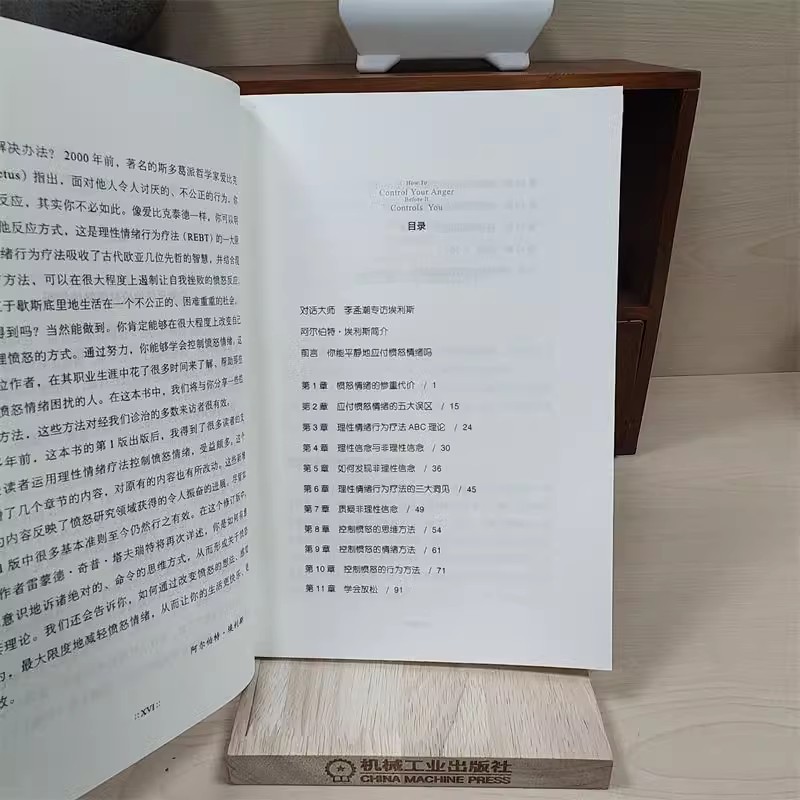 解决办法？2000年前，著名的斯多葛派哲学家爱比克
ctus）指出，面对他人令人讨厌的、不公正的行为，你
反应，其实你不必如此。像爱比克泰德一样，你可以明
他反应方式，这是理性情绪行为疗法（REBT）的一大原
绪行为疗法吸收了古代欧亚几位先哲的智慧，并结合
方法，可以在很大程度上遏制让自我挫败的愤怒反应，
于歇斯底里地生活在一个不公正的、困难重重的社会。
得到吗？当然能做到。你肯定能够在很大程度上改变自己
理愤怒的方式。通过努力，你能够学会控制愤怒情绪。这
位作者，在其职业生涯中花了很多时间来了解、帮助那些
愤怒情绪困扰的人。在这本书中，我们将与你分享一些
方法，这些方法对经我们诊治的多数来访者很有效。
年前，这本书的第1版出版后，我得到了很多读者的
读者运用理性情绪疗法控制愤怒情绪，受益颇多。这个
了几个章节的内容，对原有的内容也有所改动。这些新
的内容反映了愤怒研究领域获得的令人振奋的进展。尽管如
版中很多基本准则至今仍然行之有效。在这个修订版中，
作者雷蒙德·奇普·塔夫瑞特将再次详述，你是如何有意
意识地诉诸绝对的、命令的思维方式，从而形成关于愤怒
理论。我们还会告诉你，如何通过改变愤怒的想法、感
的，最大限度地减轻愤怒情绪，从而让你的生活更快乐、
效。
阿尔伯特·埃利斯
XVI
How To
Control Your Anger
Before It
Controls You
目录
对话大师 李孟潮专访埃利斯
阿尔伯特·埃利斯简介
前言 你能平静地应付愤怒情绪吗
第1章 愤怒情绪的惨重代价 / 1
第2章 应付愤怒情绪的五大误区 / 15
第3章 理性情绪行为疗法ABC理论 / 24
第4章 理性信念与非理性信念 / 30
第5章 如何发现非理性信念 / 36
第6章 理性情绪行为疗法的三大洞见 / 45
第7章 质疑非理性信念 / 49
第8章 控制愤怒的思维方法 / 54
第9章 控制愤怒的情绪方法 / 61
第10章 控制愤怒的行为方法 / 71
第11章 学会放松 / 91
机械工业出版社
CHINA MACHINE PRESS